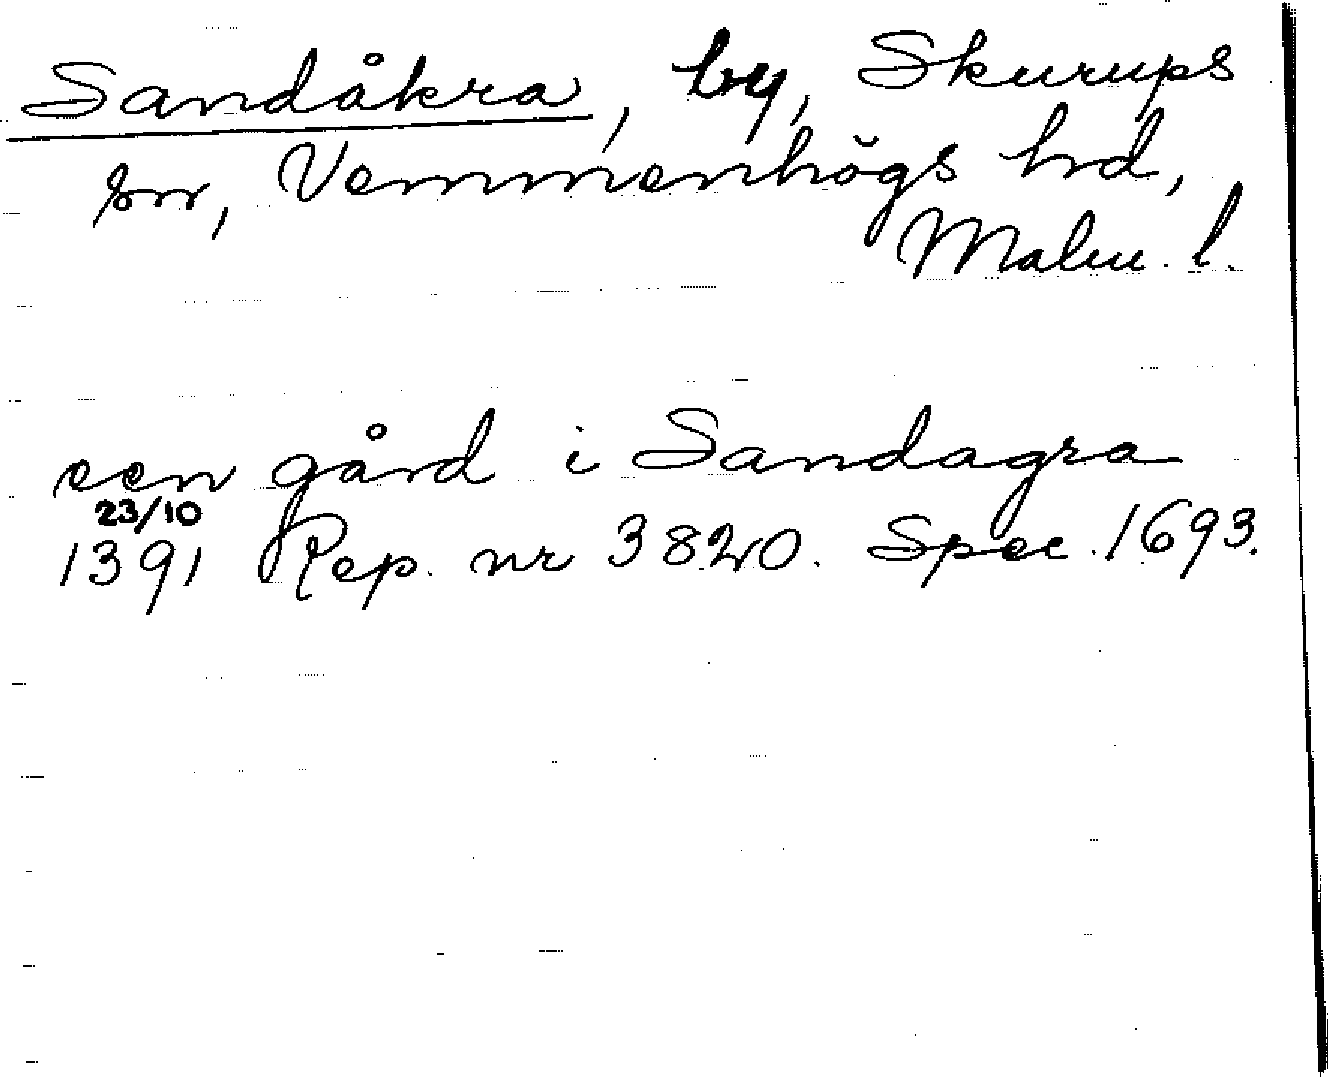 Sandåkra, by, Skurups
sn, Vemmenhögs hd,
Malm. l.
een gård i Sandagra
23/10
1391 Rep. nr 3820. Spec. 1693.